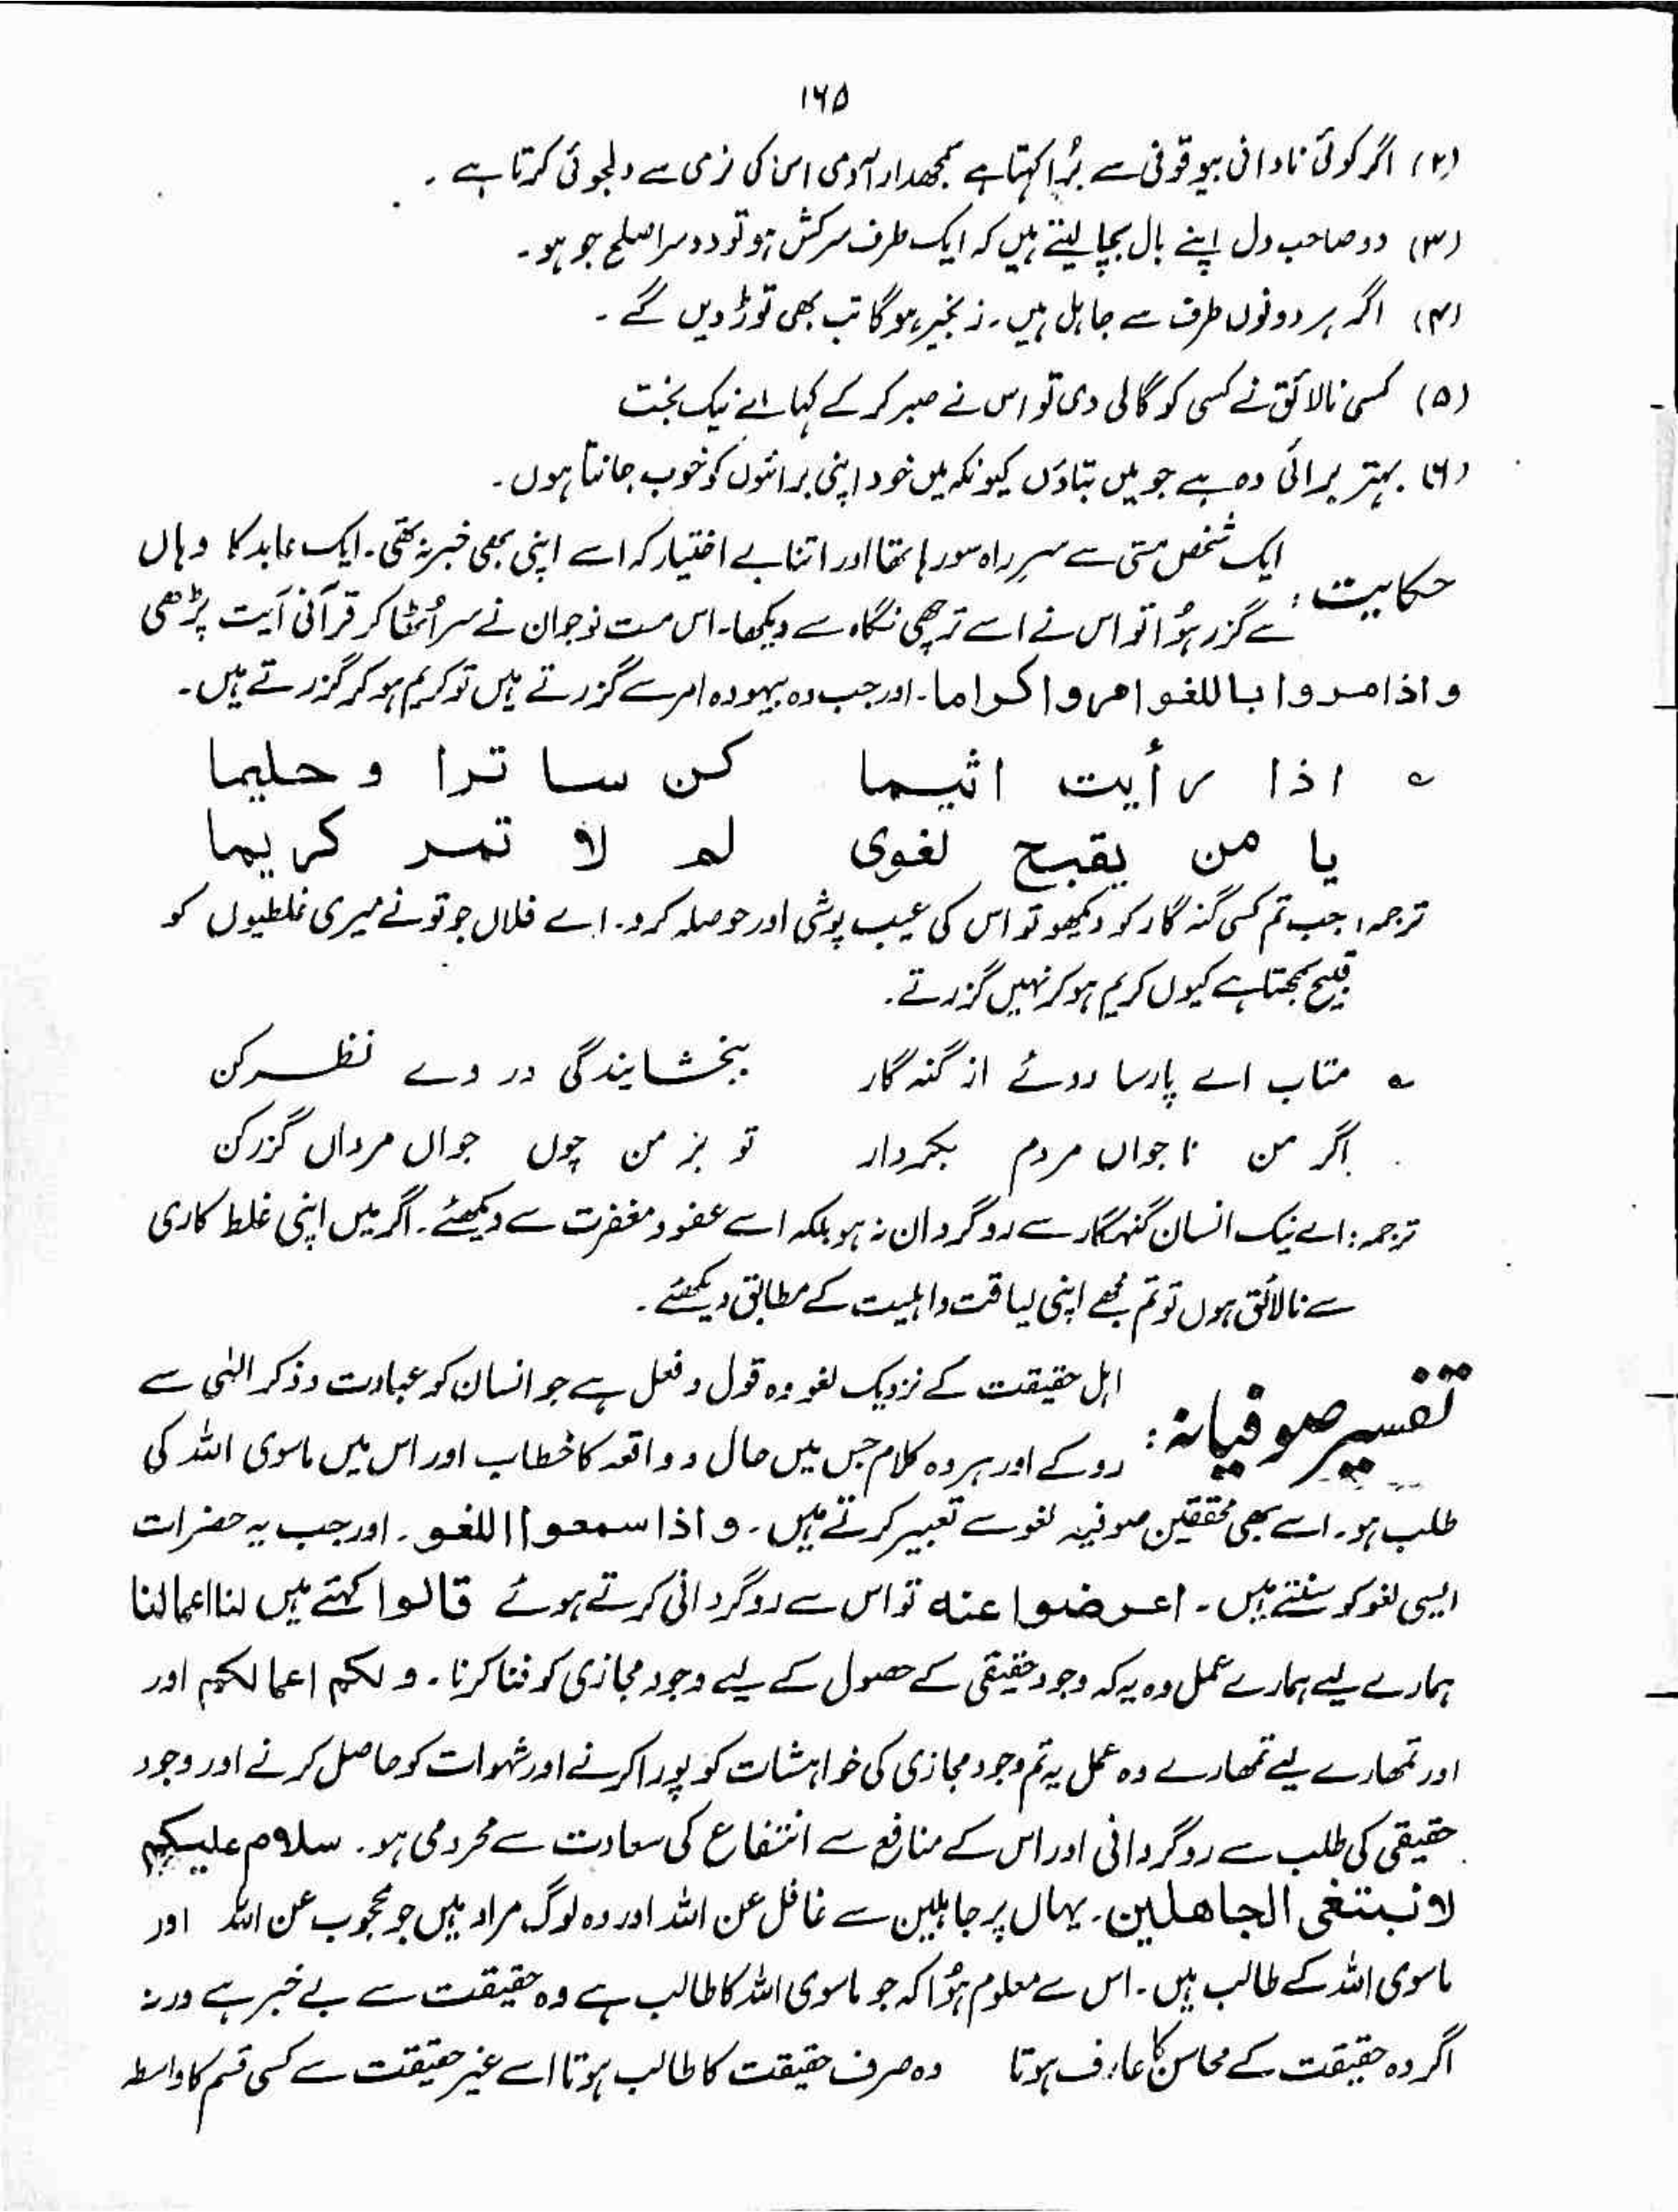 ۱۶۵
(۲) اگر کوئی نادانی بیوقوفی سے بُرا کہتا ہے سمجھدار آدمی اس کی نرمی سے دلجوئی کرتا ہے ۔
(۳) دو صاحب دل اپنے بال بچا لیتے ہیں کہ ایک طرف سرکش ہو تو دوسرا صلح جو ہو ۔
(۴) اگر ہر دونوں طرف سے جاہل ہیں ۔ زنجیر ہوگا تب بھی توڑ دیں گے ۔
(۵) کسی نالائق نے کسی کو گالی دی تو اس نے صبر کر کے کہا اے نیک بخت
(۶) بہتر برائی وہ ہے جو میں بتاؤں کیونکہ میں خود اپنی برائیوں کو خوب جانتا ہوں ۔
حکایت : ایک شخص مستی سے سرِ راہ سو رہا تھا اور اتنا بے اختیار کہ اسے اپنی بھی خبر نہ تھی ۔ ایک عابد کا وہاں
سے گزر ہوُا تو اس نے اسے ترچھی نگاہ سے دیکھا ۔ اس مست نوجوان نے سر اُٹھا کر قرآنی آیت پڑھی
و اذا مروا باللغو امروا کراما ۔ اور جب وہ بیہودہ امر سے گزرتے ہیں تو کریم ہو کر گزرتے ہیں ۔
؎ اذا رأیت اثیما کن ساترا و حلیما
یا من یقبح لغوی لم لا تمر کریما
ترجمہ : جب تم کسی گنہ گار کو دیکھو تو اس کی عیب پوشی اور حوصلہ کرو ۔ اے فلاں جو تو نے میری غلطیوں کو
قبیح سمجھتا ہے کیوں کریم ہو کر نہیں گزرتے ۔
؎ متاب اے پارسا روئے از گنہ گار ببخشایندگی در وے نظر کن
اگر من نا جواں مردم بکردار تو بر من چوں جواں مرداں گزر کن
ترجمہ : اے نیک انسان گنہگار سے روگردان نہ ہو بلکہ اسے عفو و مغفرت سے دیکھئے ۔ اگر میں اپنی غلط کاری
سے نالائق ہوں تو تم مجھے اپنی لیاقت و اہلیت کے مطابق دیکھئے ۔
تفسیر صوفیانہ : اہل حقیقت کے نزدیک لغو وہ قول و فعل ہے جو انسان کو عبادت و ذکر الٰہی سے
روکے اور ہر وہ کلام جس میں حال و واقعہ کا خطاب اور اس میں ماسوی اللہ کی
طلب ہو ۔ اسے بھی محققین صوفیہ لغو سے تعبیر کرتے ہیں ۔ و اذا سمعوا اللغو ۔ اور جب یہ حضرات
ایسی لغو کو سنتے ہیں ۔ اعرضوا عنه تو اس سے روگردانی کرتے ہوئے قالوا کہتے ہیں لنا اعمالنا
ہمارے لیے ہمارے عمل وہ یہ کہ وجود حقیقی کے حصول کے لیے وجود مجازی کو فنا کرنا ۔ و لکم اعمالکم اور
اور تمھارے لیے تمھارے وہ عمل یہ تم وجود مجازی کی خواہشات کو پورا کرنے اور شہوات کو حاصل کرنے اور وجود
حقیقی کی طلب سے روگردانی اور اس کے منافع سے انتفاع کی سعادت سے محرومی ہو ۔ سلام علیکم
لا نبتغی الجاهلین ۔ یہاں پر جاہلین سے غافل عن اللہ اور وہ لوگ مراد ہیں جو محجوب عن اللہ اور
ماسوی اللہ کے طالب ہیں ۔ اس سے معلوم ہوُا کہ جو ماسوی اللہ کا طالب ہے وہ حقیقت سے بے خبر ہے ورنہ
اگر وہ حقیقت کے محاسن کا عارف ہوتا وہ صرف حقیقت کا طالب ہوتا اسے غیر حقیقت سے کسی قسم کا واسطہ